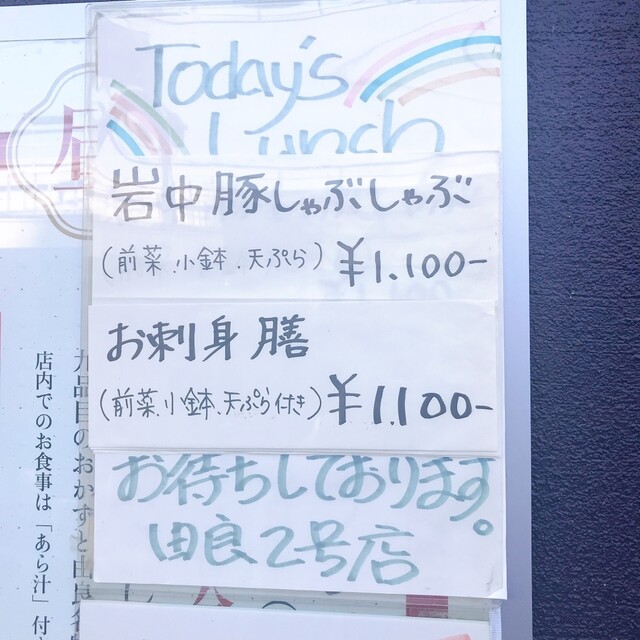 Today's
Lunch
岩中豚しゃぶしゃぶ
(前菜.小鉢.天ぷら) ¥1.100-
お刺身膳
(前菜.小鉢.天ぷら付き) ¥1.100-
お待ちしております。
由良2号店
九品目のおかずと由良
店内でのお食事は「あら汁」付